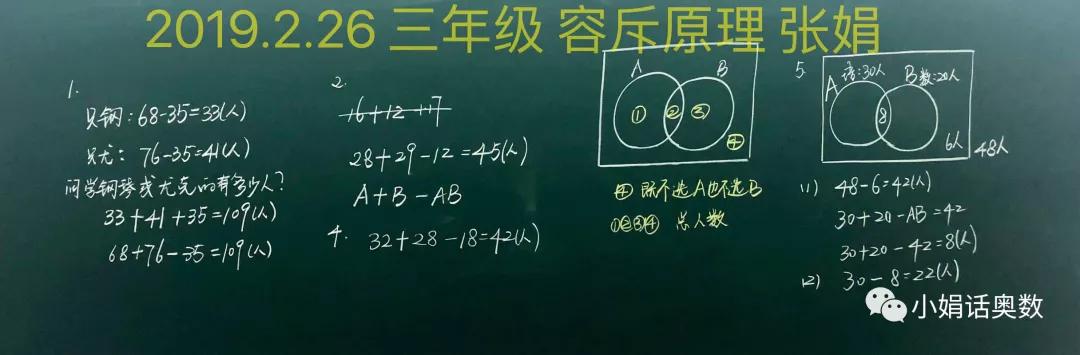 2019.2.26 三年级 容斥原理 张娟
1.
只钢：68-35=33(人)
只尤：76-35=41(人)
问学钢琴或尤克的有多少人？
33+41+35=109(人)
68+76-35=109(人)
2.
16+12+17
28+29-12=45(人)
A+B-AB
4. 32+28-18=42(人)
A B
① ② ③
④
④ 既不选A也不选B
①②③④ 总人数
5.
A 语:30人 B 数:20人
8
6人
48人
(1) 48-6=42(人)
30+20-AB=42
30+20-42=8(人)
(2) 30-8=22(人)
小娟话奥数